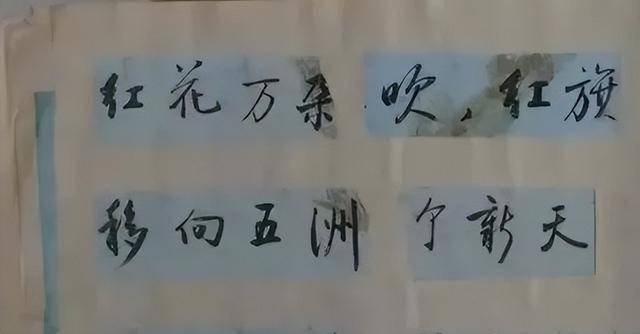 红花万朵吹,红旗
移向五洲个新天